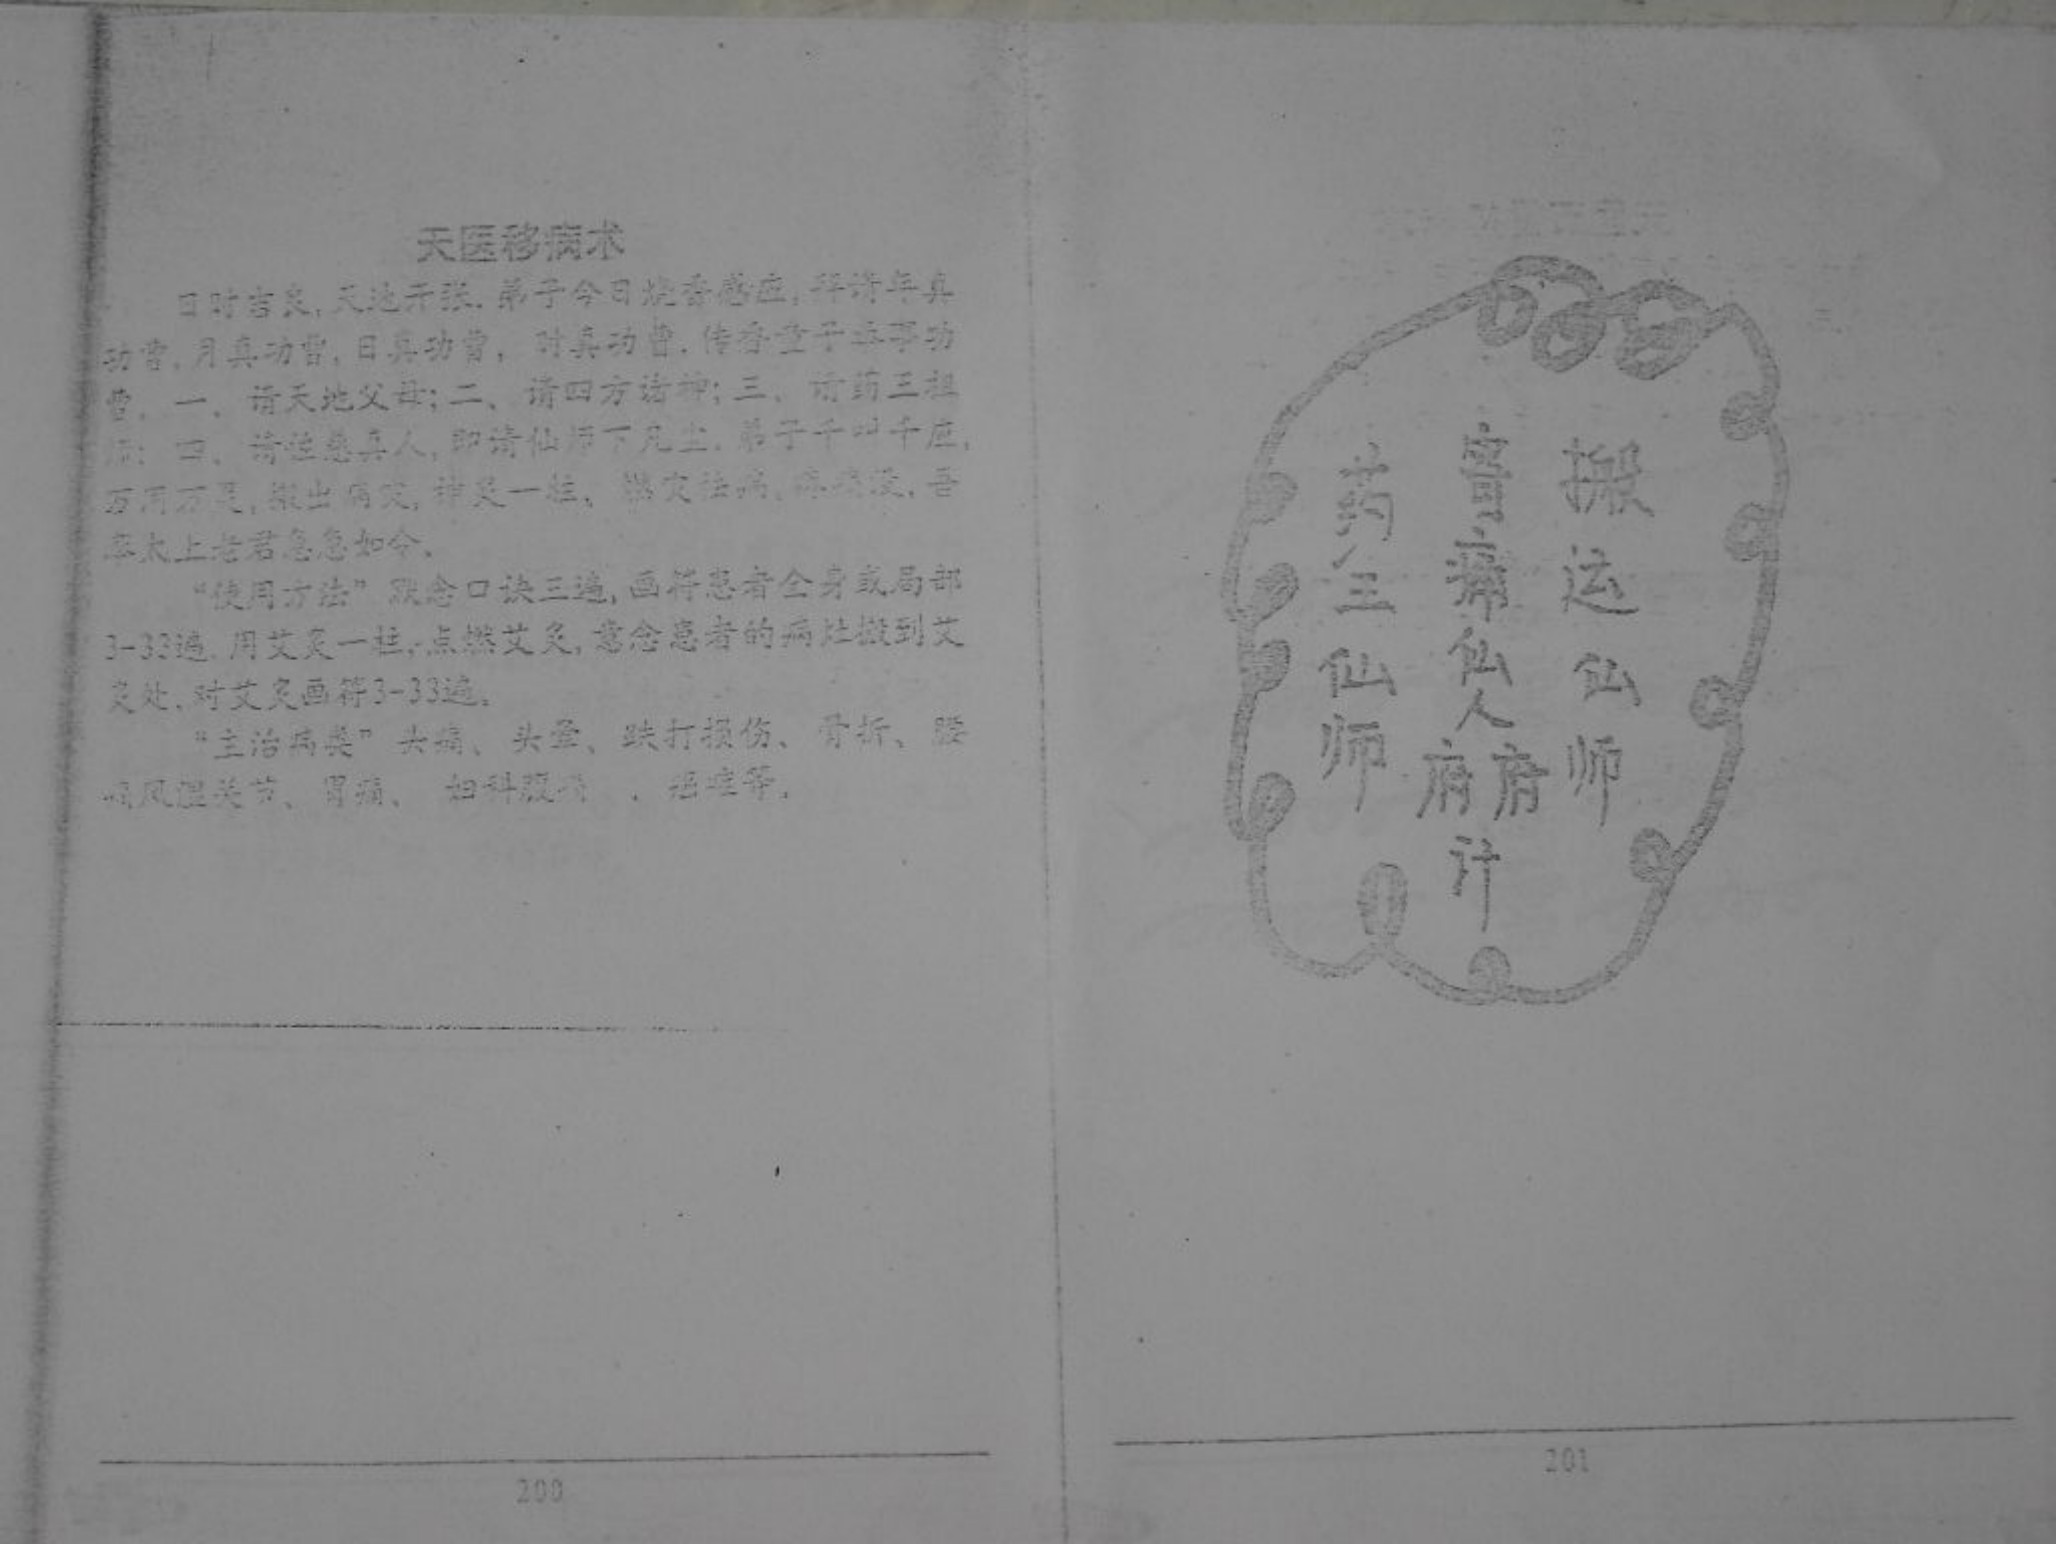 天医移病术
日时吉良,天地开张.弟子今日烧香感应,拜请年真
功曹,月真功曹,日真功曹,时真功曹.传香童子
曹,一、请天地父母;二、请四方诸神;三、请药王祖
师;四、请 真人,即请仙师下凡尘.弟子千叫千应,
万 万灵,搬出病灾,神灸一柱、 病, 吾
奉太上老君急急如令。
“使用方法”默念口诀三遍,画符患者全身或局部
3-33遍.用艾灸一柱,点燃艾灸,意念患者的病灶搬到艾
灸处,对艾灸画符3-33遍。
“主治病类”头痛、头晕、跌打损伤、骨折、腰
痛风湿关节、胃痛、妇科腹 、 症等.
200
搬运仙师
仙人
计
药王仙师
201